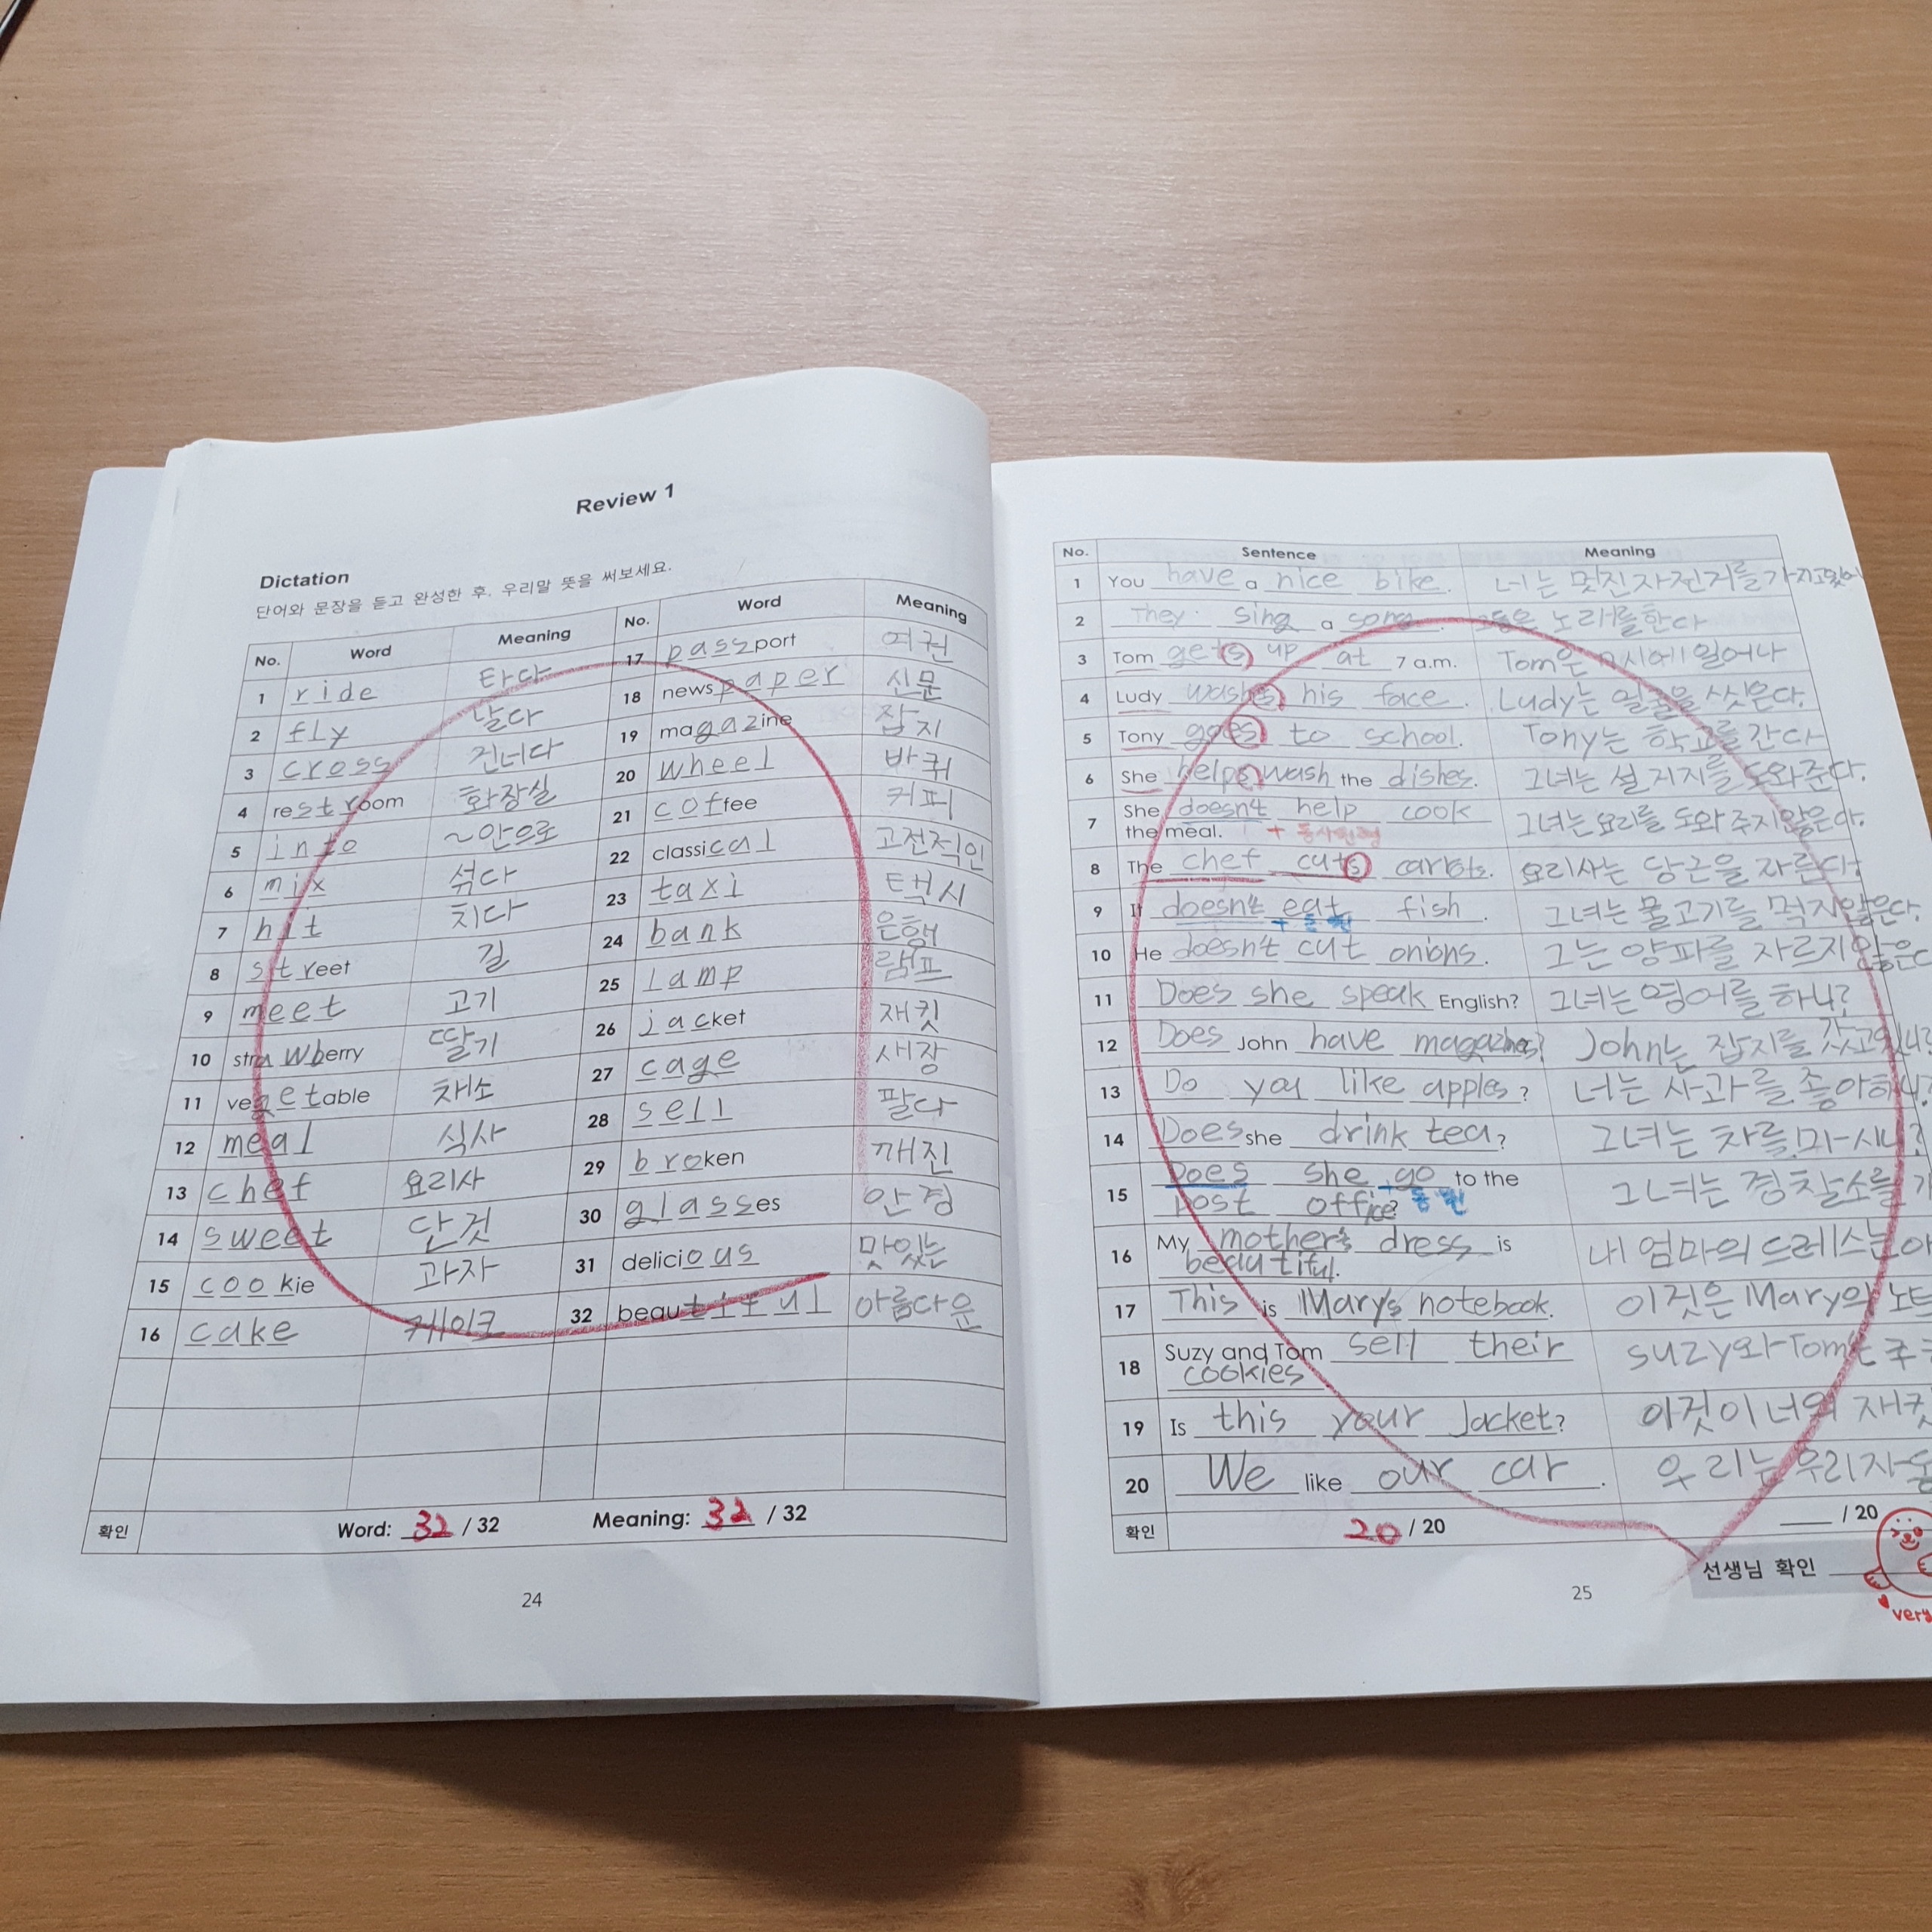 Review 1
Dictation
단어와 문장을 듣고 완성한 후, 우리말 뜻을 써보세요.
No. Word Meaning No. Word Meaning
1 ride 타다 17 passport 여권
2 fly 날다 18 newspaper 신문
3 cross 건너다 19 magazine 잡지
4 restroom 화장실 20 wheel 바퀴
5 into ~안으로 21 coffee 커피
6 mix 섞다 22 classical 고전적인
7 hit 치다 23 taxi 택시
8 street 길 24 bank 은행
9 meet 고기 25 lamp 램프
10 strawberry 딸기 26 jacket 재킷
11 vegetable 채소 27 cage 새장
12 meal 식사 28 sell 팔다
13 chef 요리사 29 broken 깨진
14 sweet 단것 30 glasses 안경
15 cookie 과자 31 delicious 맛있는
16 cake 케이크 32 beautiful 아름다운
확인 Word: 32 / 32 Meaning: 32 / 32
24
No. Sentence Meaning
1 You have a nice bike. 너는 멋진 자전거를 가지고있어
2 They sing a song. 그들은 노래를 한다
3 Tom gets up at 7 a.m. Tom은 7시에 일어나
4 Ludy washs his face. Ludy는 얼굴을 씻는다.
5 Tony goes to school. Tony는 학교를 간다
6 She helps wash the dishes. 그녀는 설거지를 도와준다.
7 She doesn't help cook 그녀는 요리를 도와주지 않은다.
the meal. + 동사원형
8 The chef cuts carrots. 요리사는 당근을 자른다.
9 It doesn't eat fish. 그녀는 물고기를 먹지않은다.
+ 동원
10 He doesn't cut onions. 그는 양파를 자르지않은
11 Does she speak English? 그녀는 영어를 하니?
12 Does John have magazines? John는 잡지를 갖고있니?
13 Do you like apples? 너는 사과를 좋아하니?
14 Does she drink tea? 그녀는 차를 마시니?
15 Does she go to the 그녀는 경찰소를
post office? + 동원
16 My mother's dress is 내 엄마의 드레스는 아
beautiful.
17 This is Mary's notebook. 이것은 Mary의 노트
18 Suzy and Tom sell their suzy와 Tom는
cookies
19 Is this your Jacket? 이것이 너의 재킷
20 We like our car. 우리는 우리 자동
확인 20 / 20 / 20
선생님 확인
very
25